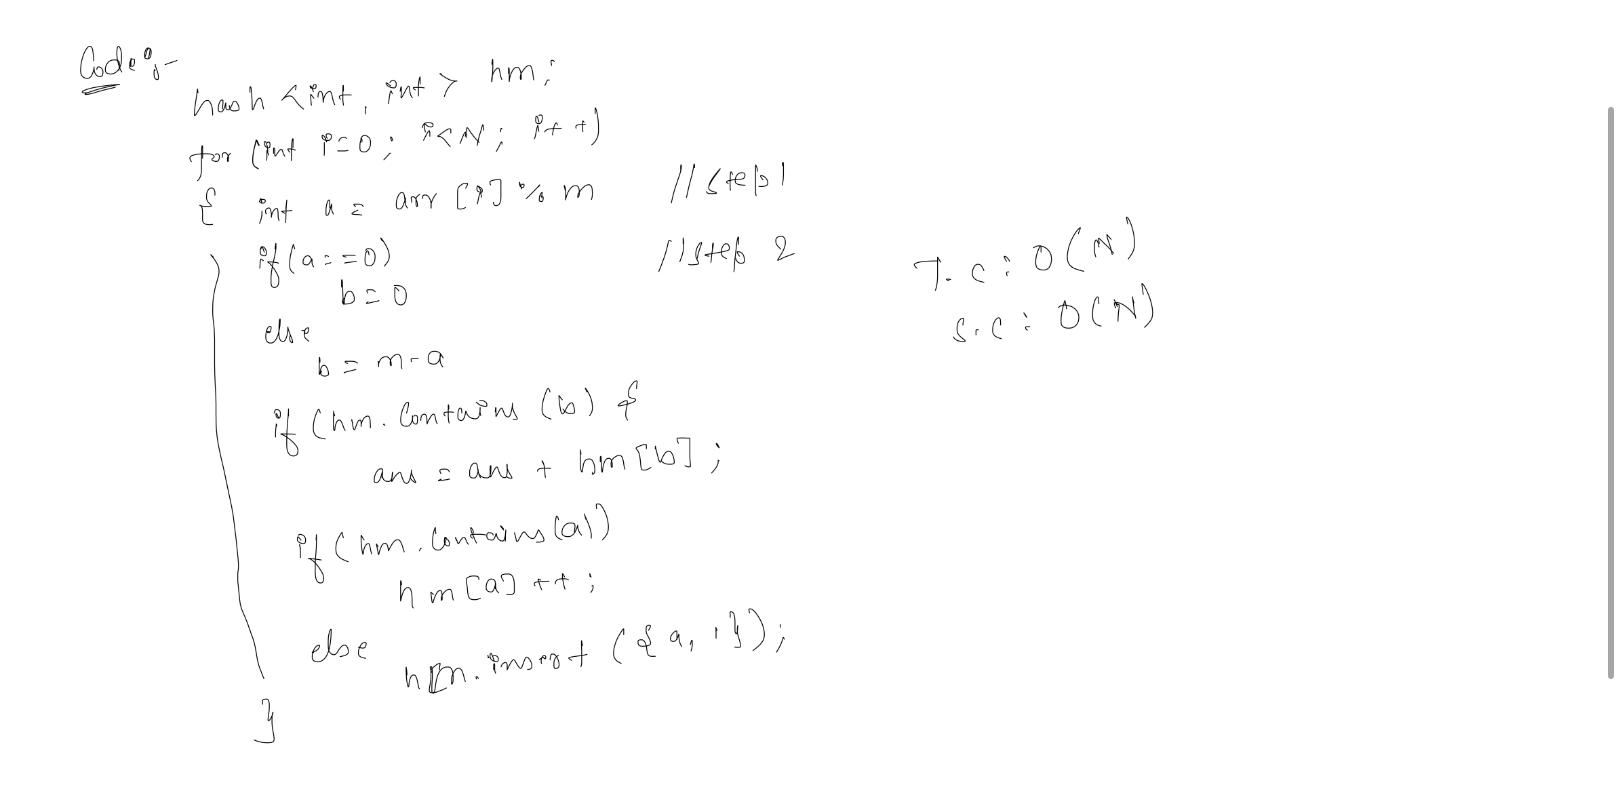 Code :-
hash <int, int> hm;
for (int i=0; i<N; i++)
{ int a = arr [i] % m //step 1
if (a==0) //step 2
b=0
else
b = m-a
if (hm. Contains (b) {
ans = ans + hm [b];
if (hm. Contains (a))
hm [a] ++;
else
hm. insert ({a, 1});
}
T.C: O(N)
S.C: O(N)